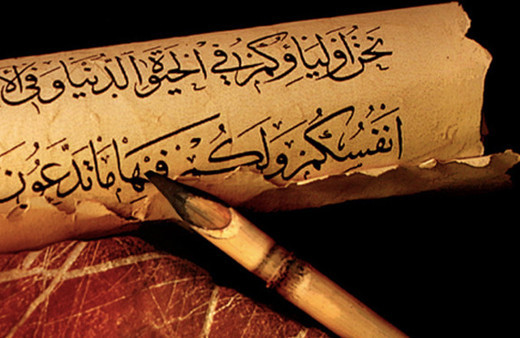 نَحْنُ اَوْلِيَاؤُكُمْ فِي الْحَيٰوةِ الدُّنْيَا وَفِي الْا
اَنْفُسُكُمْ وَلَكُمْ فِيْهَا مَا تَدَّعُوْنَ